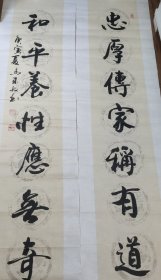 忠厚傳家稱有道
和平養性應無奇
庚寅夏